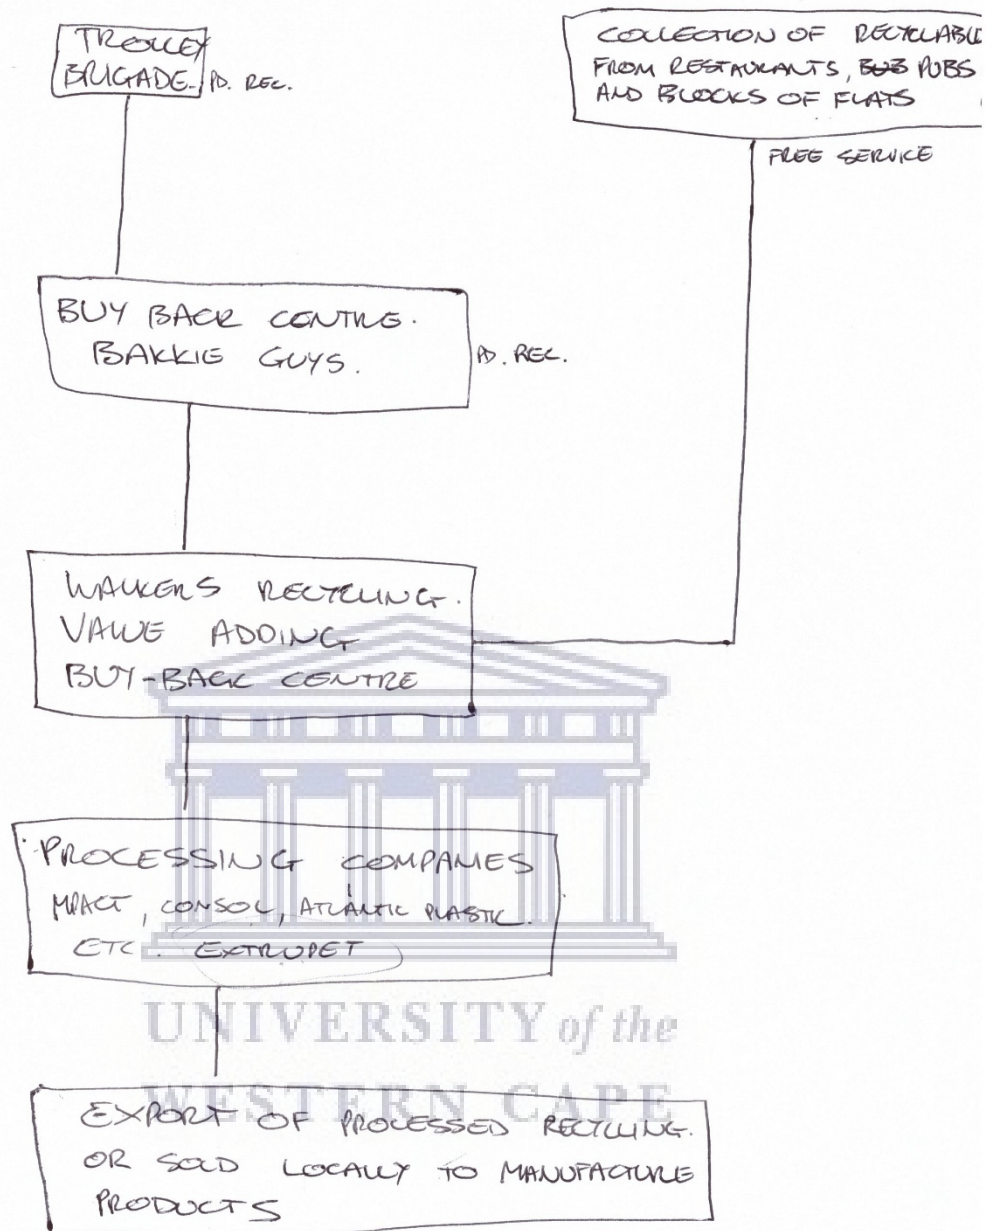 TROLLEY
BRIGADE. PD. REC.
COLLECTION OF RECYCLABLE
FROM RESTAURANTS, PUBS
AND BLOCKS OF FLATS
FREE SERVICE
BUY BACK CENTRE.
BAKKIE GUYS.
PD. REC.
WALKERS RECYCLING.
VALUE ADDING
BUY-BACK CENTRE
PROCESSING COMPANIES
MPACT, CONSOL, ATLANTIC PLASTIC.
ETC. EXTRUPET
UNIVERSITY of the
WESTERN CAPE
EXPORT OF PROCESSED RECYCLING.
OR SOLD LOCALLY TO MANUFACTURE
PRODUCTS